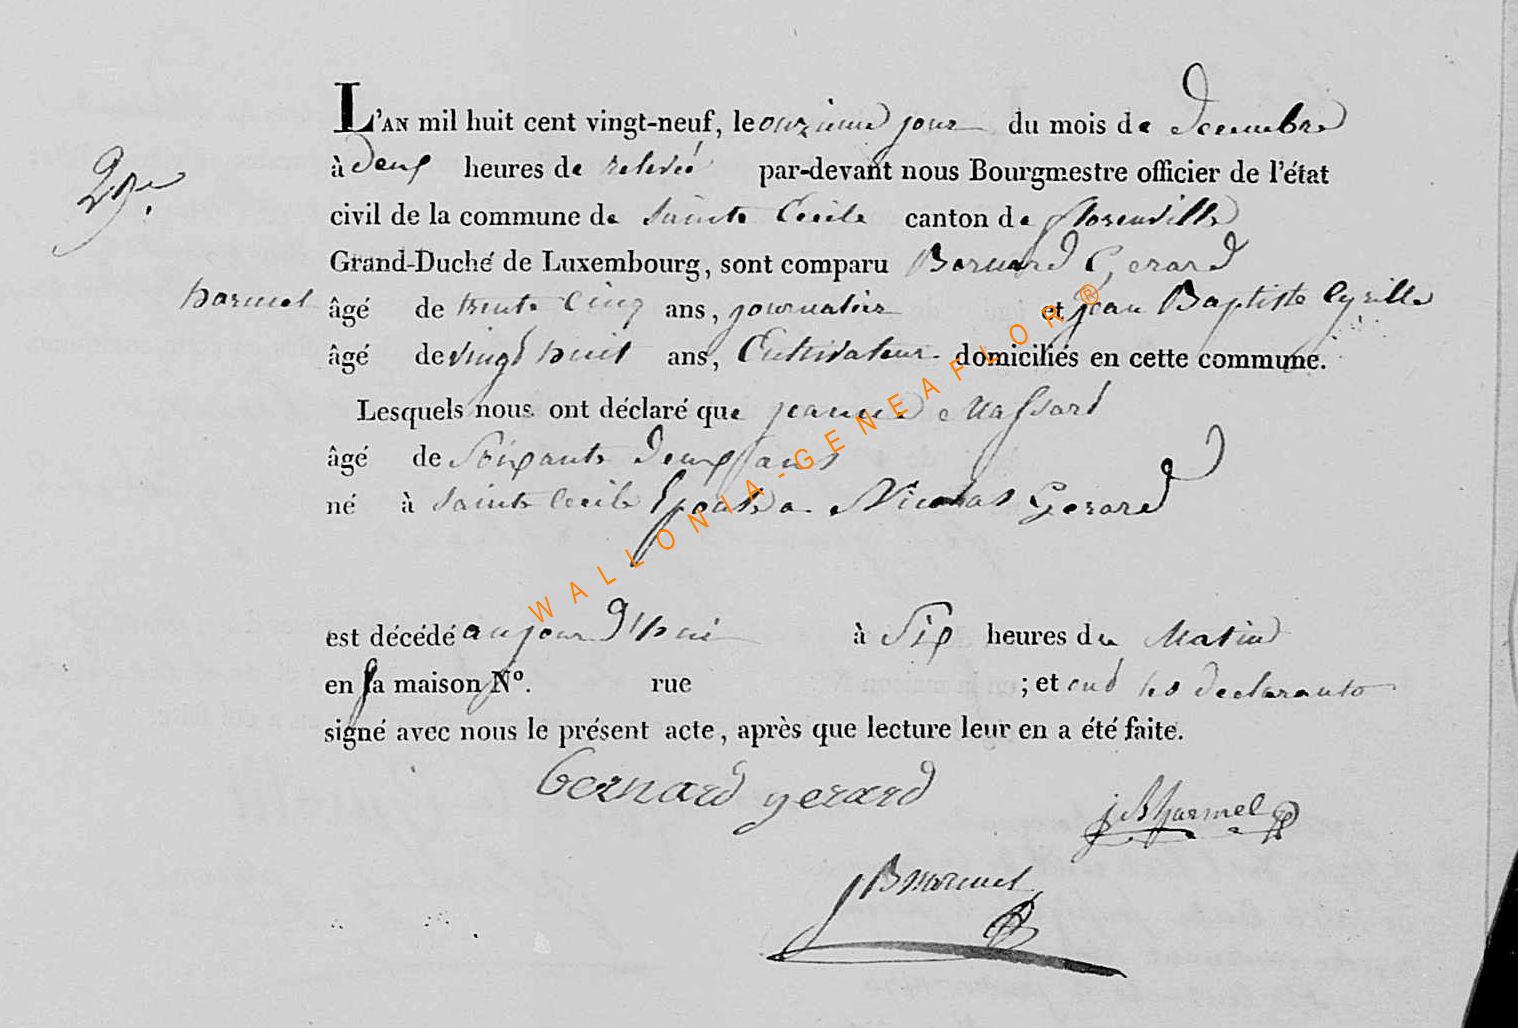 L'AN mil huit cent vingt-neuf, le onzieme jour du mois de Decembre
à Deux heures de relevée par-devant nous Bourgmestre officier de l'état
civil de la commune de Sainte Cecile canton de florenville
Grand-Duché de Luxembourg, sont comparu Bernard Gerard
âgé de trente Cinq ans, journalier et jean Baptiste Cyrille
harmel
âgé de vingt huit ans, Cultivateur domiciliés en cette commune.
Lesquels nous ont déclaré que jeanne Massard
âgé de Soixante Deux ans
né à Sainte Cecile Epouse a Nicolas Gerard
est décédé aujourd'hui à Six heures du Matin
en sa maison N°. rue ; et ont les declarants
signé avec nous le présent acte, après que lecture leur en a été faite.
bernard gerard
j B harmel
j B harmel
WALLONIA-GENEAFLOR®